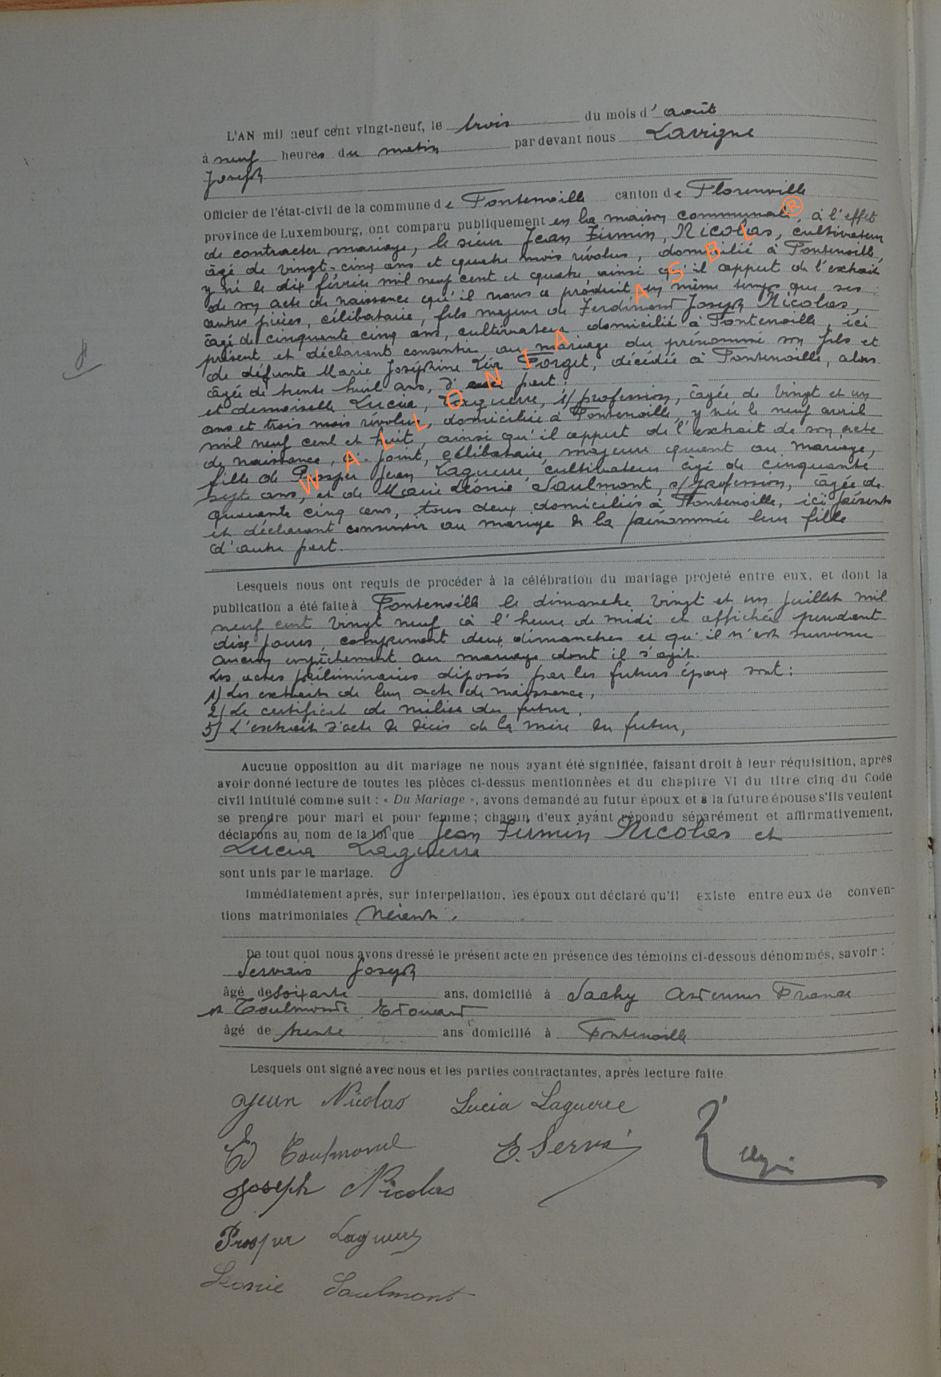 L'AN mil neuf cent vingt-neuf, le trois du mois d'août
à neuf heures du matin par devant nous Lavigne
Joseph
Officier de l'état-civil de la commune de Fontenoille canton de Florenville
province de Luxembourg, ont comparu publiquement en la maison communale, à l'effet
de contracter mariage, le sieur Jean Firmin, Nicolas, cultivateur
âgé de vingt-cinq ans et quatre mois révolus, domicilié à Fontenoille,
y né le dix février mil neuf cent et quatre ainsi qu'il appert de l'extrait
de son acte de naissance qu'il nous a produit en même temps que ses
autres pièces, célibataire, fils majeur de Ferdinand Joseph Nicolas,
âgé de cinquante cinq ans, cultivateur domicilié à Fontenoille, ici
présent et déclarant consentir au mariage du prénommé son fils et
de défunte Marie Joséphine Forget, décédée à Fontenoille, alors
âgée de trente huit ans, d'une part;
et demoiselle Lucia, Laguerre, s/ profession, âgée de vingt et un
ans et trois mois révolus, domiciliée à Fontenoille, y née le neuf avril
mil neuf cent et huit, ainsi qu'il appert de l'extrait de son acte
de naissance, ci-joint, célibataire majeure quant au mariage,
fille de Prosper Jean Laguerre, cultivateur âgé de cinquante
sept ans, et de Marie Léonie Saulmont, s/profession, âgée de
quarante cinq ans, tous deux domiciliés à Fontenoille, ici présents
et déclarant consentir au mariage de la prénommée leur fille
d'autre part.
Lesquels nous ont requis de procéder à la célébration du mariage projeté entre eux, et dont la
publication a été faite à Fontenoille le dimanche vingt et un juillet mil
neuf cent vingt neuf à l'heure de midi et affichée pendant
dix jours, comprenant deux dimanches et qu'il n'est survenu
aucun empêchement au mariage dont il s'agit.
Les actes préliminaires déposés par les futurs époux sont:
1) Les extraits de leur acte de naissance,
2) Le certificat de milice du futur,
3) L'extrait d'acte de décès de la mère du futur,
Aucune opposition au dit mariage ne nous ayant été signifiée, faisant droit à leur réquisition, après
avoir donné lecture de toutes les pièces ci-dessus mentionnées et du chapitre VI du titre cinq du Code
civil intitulé comme suit : « Du Mariage », avons demandé au futur époux et à la future épouse s'ils veulent
se prendre pour mari et pour femme ; chacun d'eux ayant répondu séparément et affirmativement,
déclarons au nom de la loi que Jean Firmin Nicolas et
Lucia Laguerre
sont unis par le mariage.
Immédiatement après, sur interpellation, les époux ont déclaré qu'il existe entre eux de conven-
tions matrimoniales Néant.
De tout quoi nous avons dressé le présent acte en présence des témoins ci-dessous dénommés, savoir :
Servais Joseph
âgé de soixante ans, domicilié à Sachy Ardennes France
et Toulmonde Edouard
âgé de trente ans domicilié à Fontenoille
Lesquels ont signé avec nous et les parties contractantes, après lecture faite
Jean Nicolas Lucia Laguerre
Ed Toulmonde E. Servais
Joseph Nicolas
Prosper Laguerre
Léonie Saulmont
WALLONIA ASBL ®